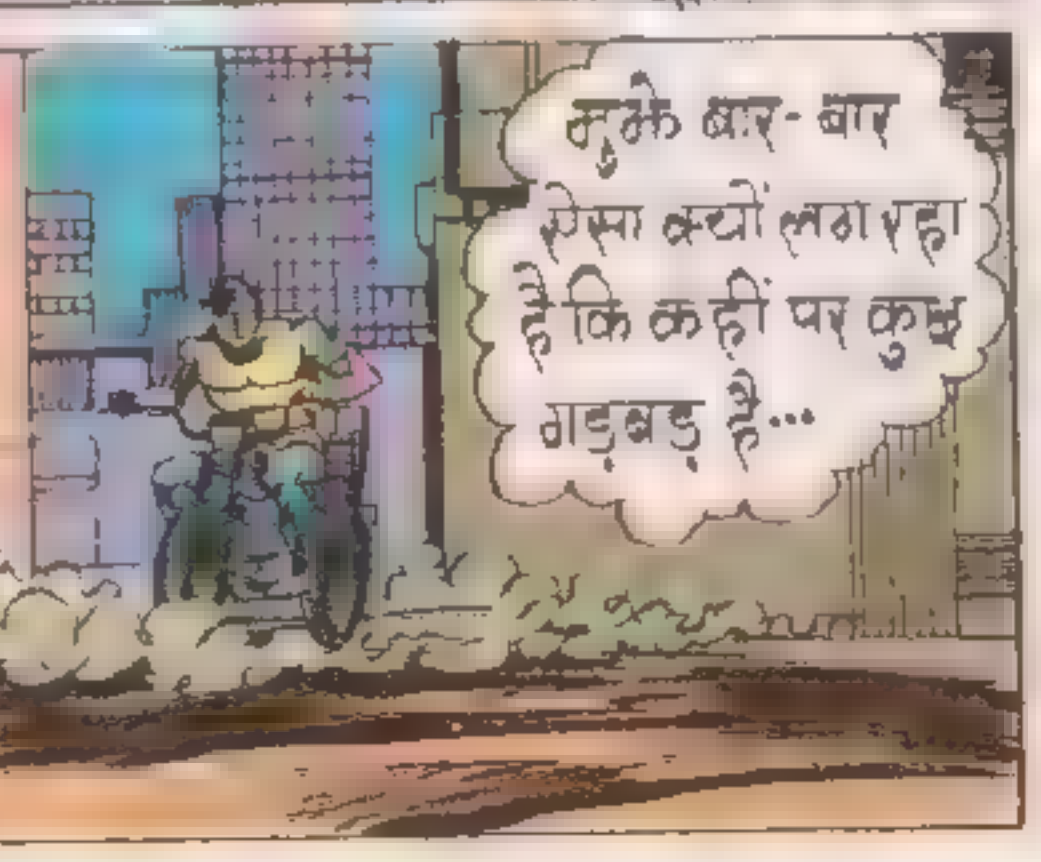 मुझे बार-बार
ऐसा क्यों लग रहा
है कि कहीं पर कुछ
गड़बड़ है...